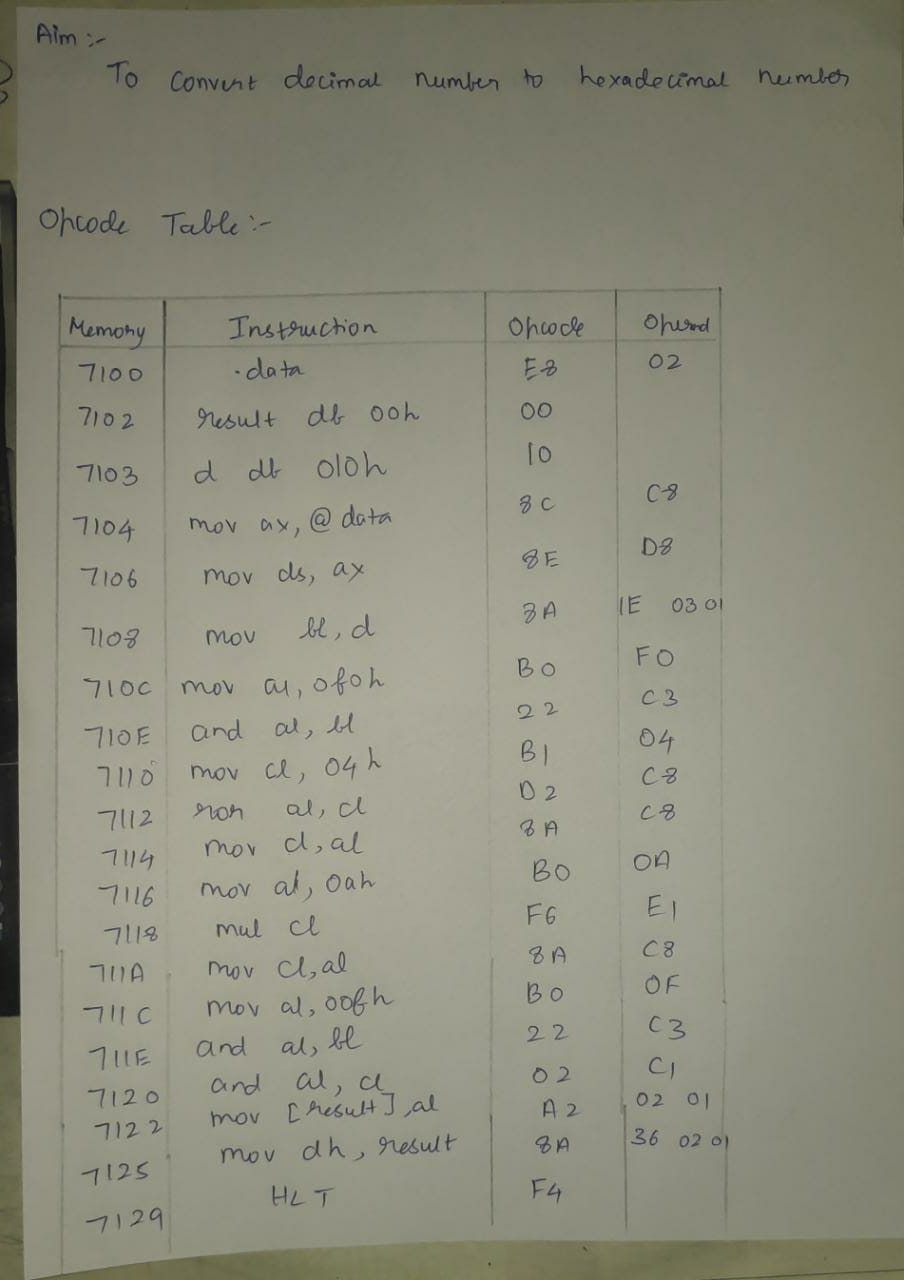 Aim :-
To convert decimal number to hexadecimal number
Opcode Table :-
Memory Instruction Opcode Operand
7100 .data E8 02
7102 result db 00h 00
7103 d db 010h 10
7104 mov ax, @ data 8C C8
7106 mov ds, ax 8E D8
7108 mov bl, d 8A 1E 03 01
710C mov al, 0f0h B0 F0
710E and al, bl 22 C3
7110 mov cl, 04h B1 04
7112 ror al, cl D2 C8
7114 mov cl, al 8A C8
7116 mov al, 0ah B0 0A
7118 mul cl F6 E1
711A mov cl, al 8A C8
711C mov al, 00fh B0 0F
711E and al, bl 22 C3
7120 and al, cl 02 C1
7122 mov [result], al A2 02 01
7125 mov dh, result 8A 36 02 01
7129 HLT F4